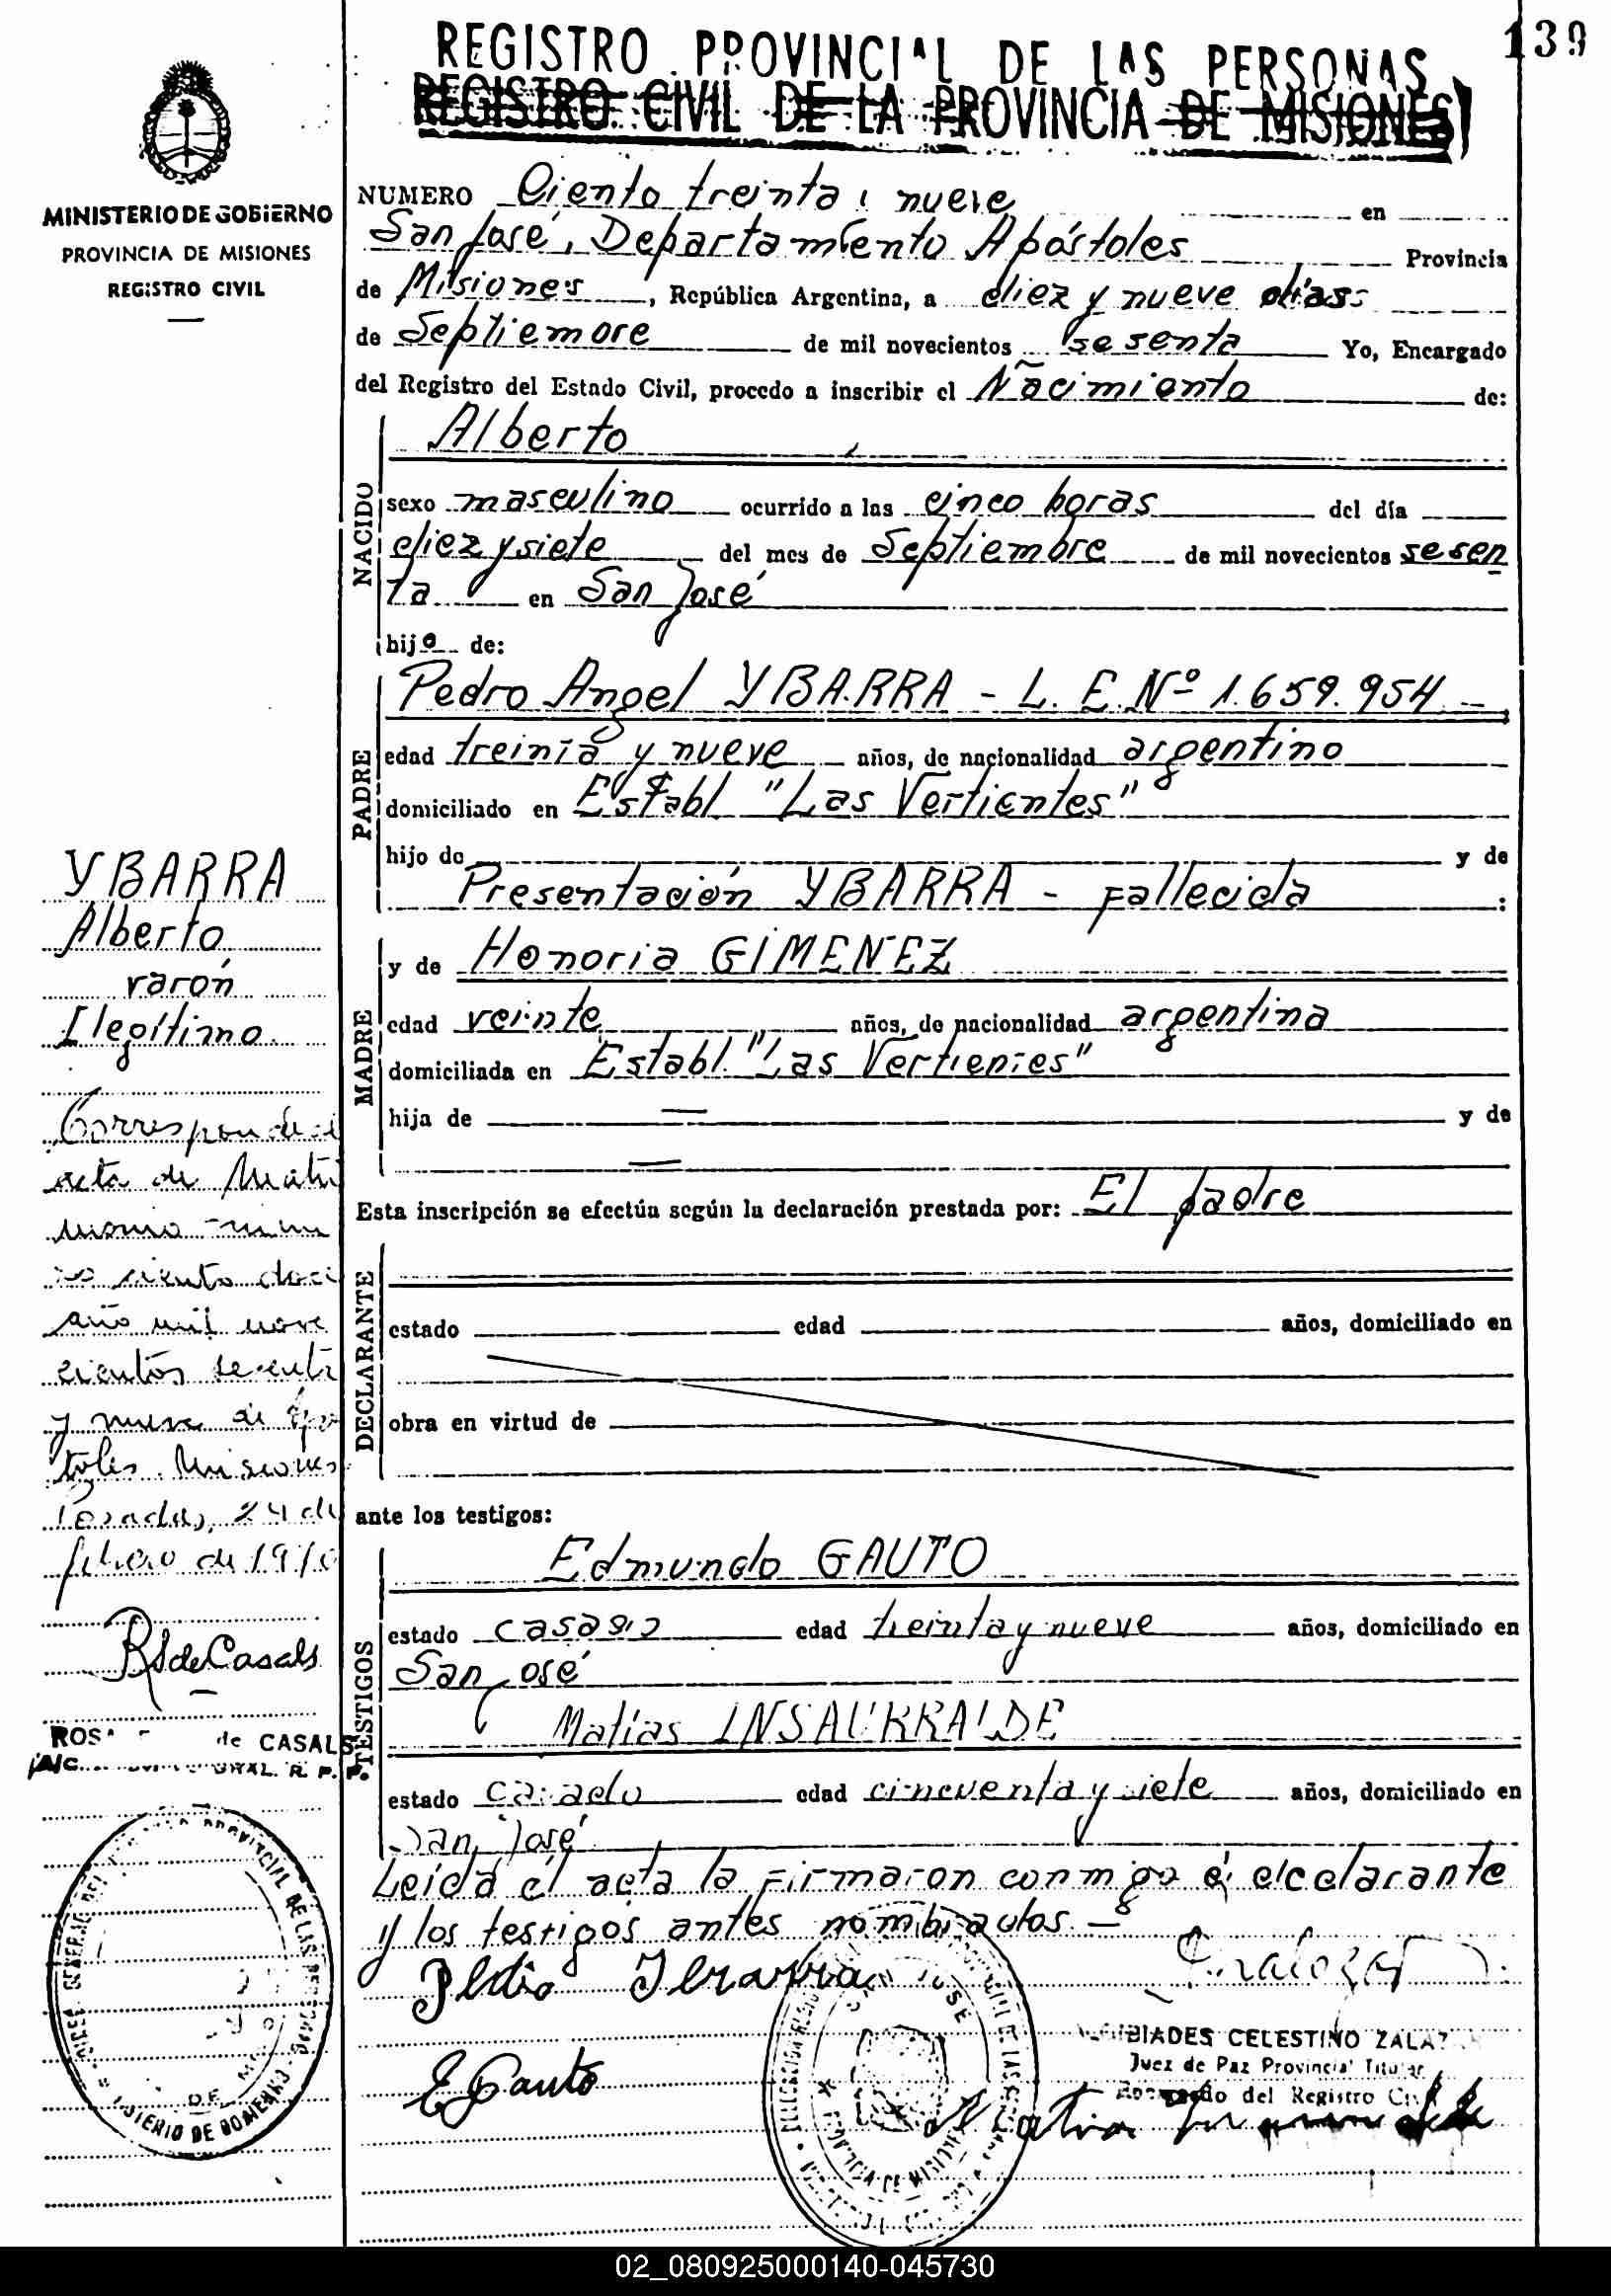 139
REGISTRO PROVINCIAL DE LAS PERSONAS
REGISTRO CIVIL DE LA PROVINCIA DE MISIONES
MINISTERIO DE GOBIERNO
PROVINCIA DE MISIONES
REGISTRO CIVIL
NUMERO Ciento treinta i nueve en
San José, Departamento Apóstoles Provincia
de Misiones, República Argentina, a diez y nueve días
de Septiembre de mil novecientos sesenta Yo, Encargado
del Registro del Estado Civil, procedo a inscribir el Nacimiento de:
NACIDO
Alberto
sexo masculino ocurrido a las cinco horas del día
diez y siete del mes de Septiembre de mil novecientos sesen
ta en San José
hijo de:
PADRE
Pedro Angel YBARRA - L. E. Nº 1.659.954
edad treinta y nueve años, de nacionalidad argentino
domiciliado en Establ. "Las Vertientes"
hijo de y de
Presentación YBARRA - fallecida :
MADRE
y de Honoria GIMENEZ
edad veinte años, de nacionalidad argentina
domiciliada en Establ. "Las Vertientes"
hija de — y de
—
Esta inscripción se efectúa según la declaración prestada por: El padre
DECLARANTE
estado edad años, domiciliado en
obra en virtud de
ante los testigos:
TESTIGOS
Edmundo GAUTO
estado casado edad treinta y nueve años, domiciliado en
San José
Matías INSAURRALDE
estado casado edad cincuenta y siete años, domiciliado en
San José
Leida el acta la firmaron conmigo el declarante
y los testigos antes nombrados. —
Pedro Ibarra
E Gauto
CELESTINO ZALAZ
Juez de Paz Provincial Titular
del Registro Civil
Matias
SAN JOSE
YBARRA
Alberto
varón
Ilegítimo
Corresponde
acta de Matri
monio
ciento doce
año mil nove
cientos sesenta
y nueve de Após
toles. Misiones
Posadas, 24 de
febrero de 1970
RS de Casals
de CASALS
GRAL. R. P. P.
PROVINCIAL DE LAS PERSONAS
MINISTERIO DE GOBIERNO
02_080925000140-045730